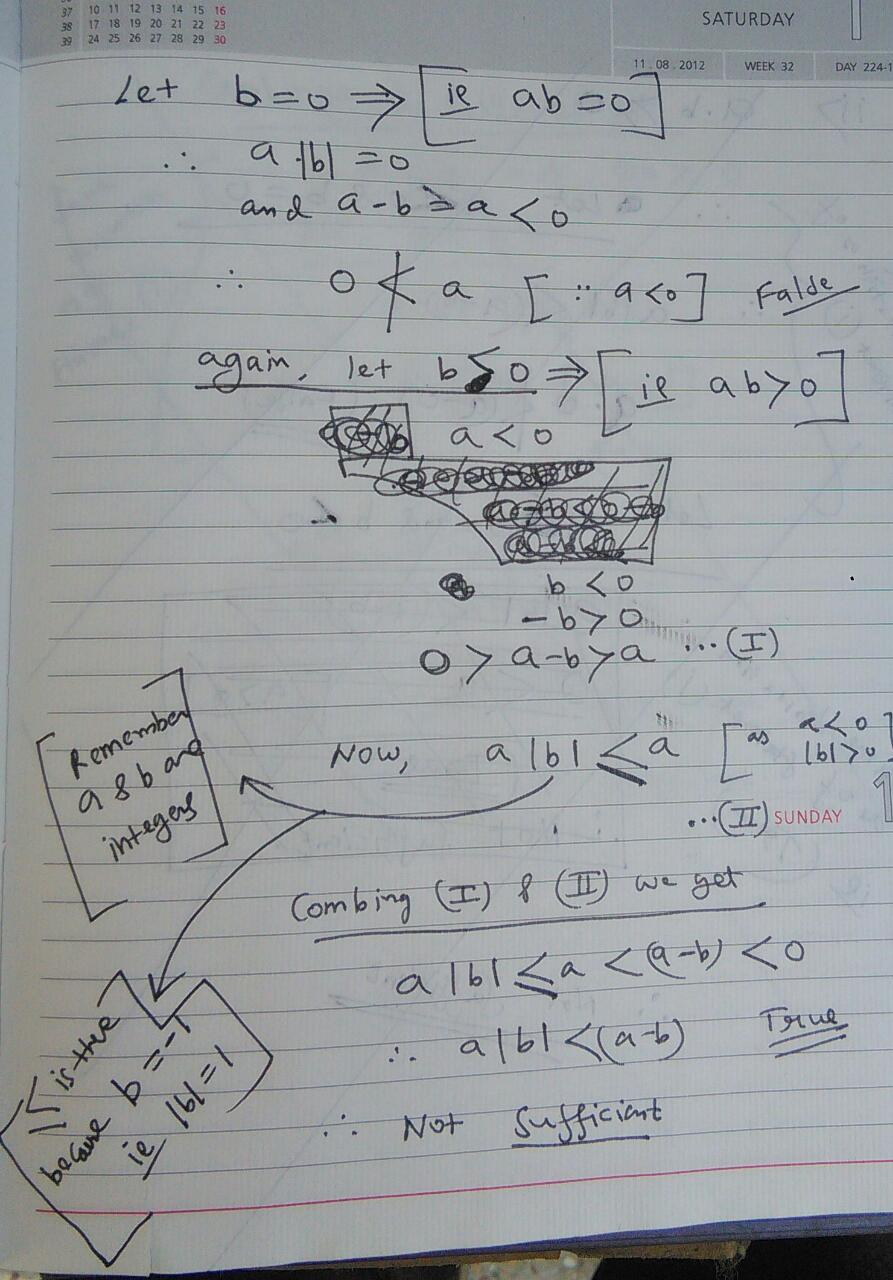 37 10 11 12 13 14 15 16
38 17 18 19 20 21 22 23
39 24 25 26 27 28 29 30
SATURDAY
11.08.2012 WEEK 32 DAY 224-1
Let b=0 ⇒ [ie ab=0]
∴ a·|b|=0
and a-b=a<0
∴ 0 ≮ a [∵ a<0] Falde
again, let b<0 ⇒ [ie ab>0]
a<0
b<0
-b>0
0>a-b>a ...(I)
Remember
a & b are
integers
Now, a|b| ≤ a [as a<0
|b|>0
...(II) SUNDAY 1
Combing (I) & (II) we get
a|b| ≤ a < (a-b) < 0
∴ a|b| < (a-b) True
∴ Not Sufficient
is
because b=-1
ie |b|=1